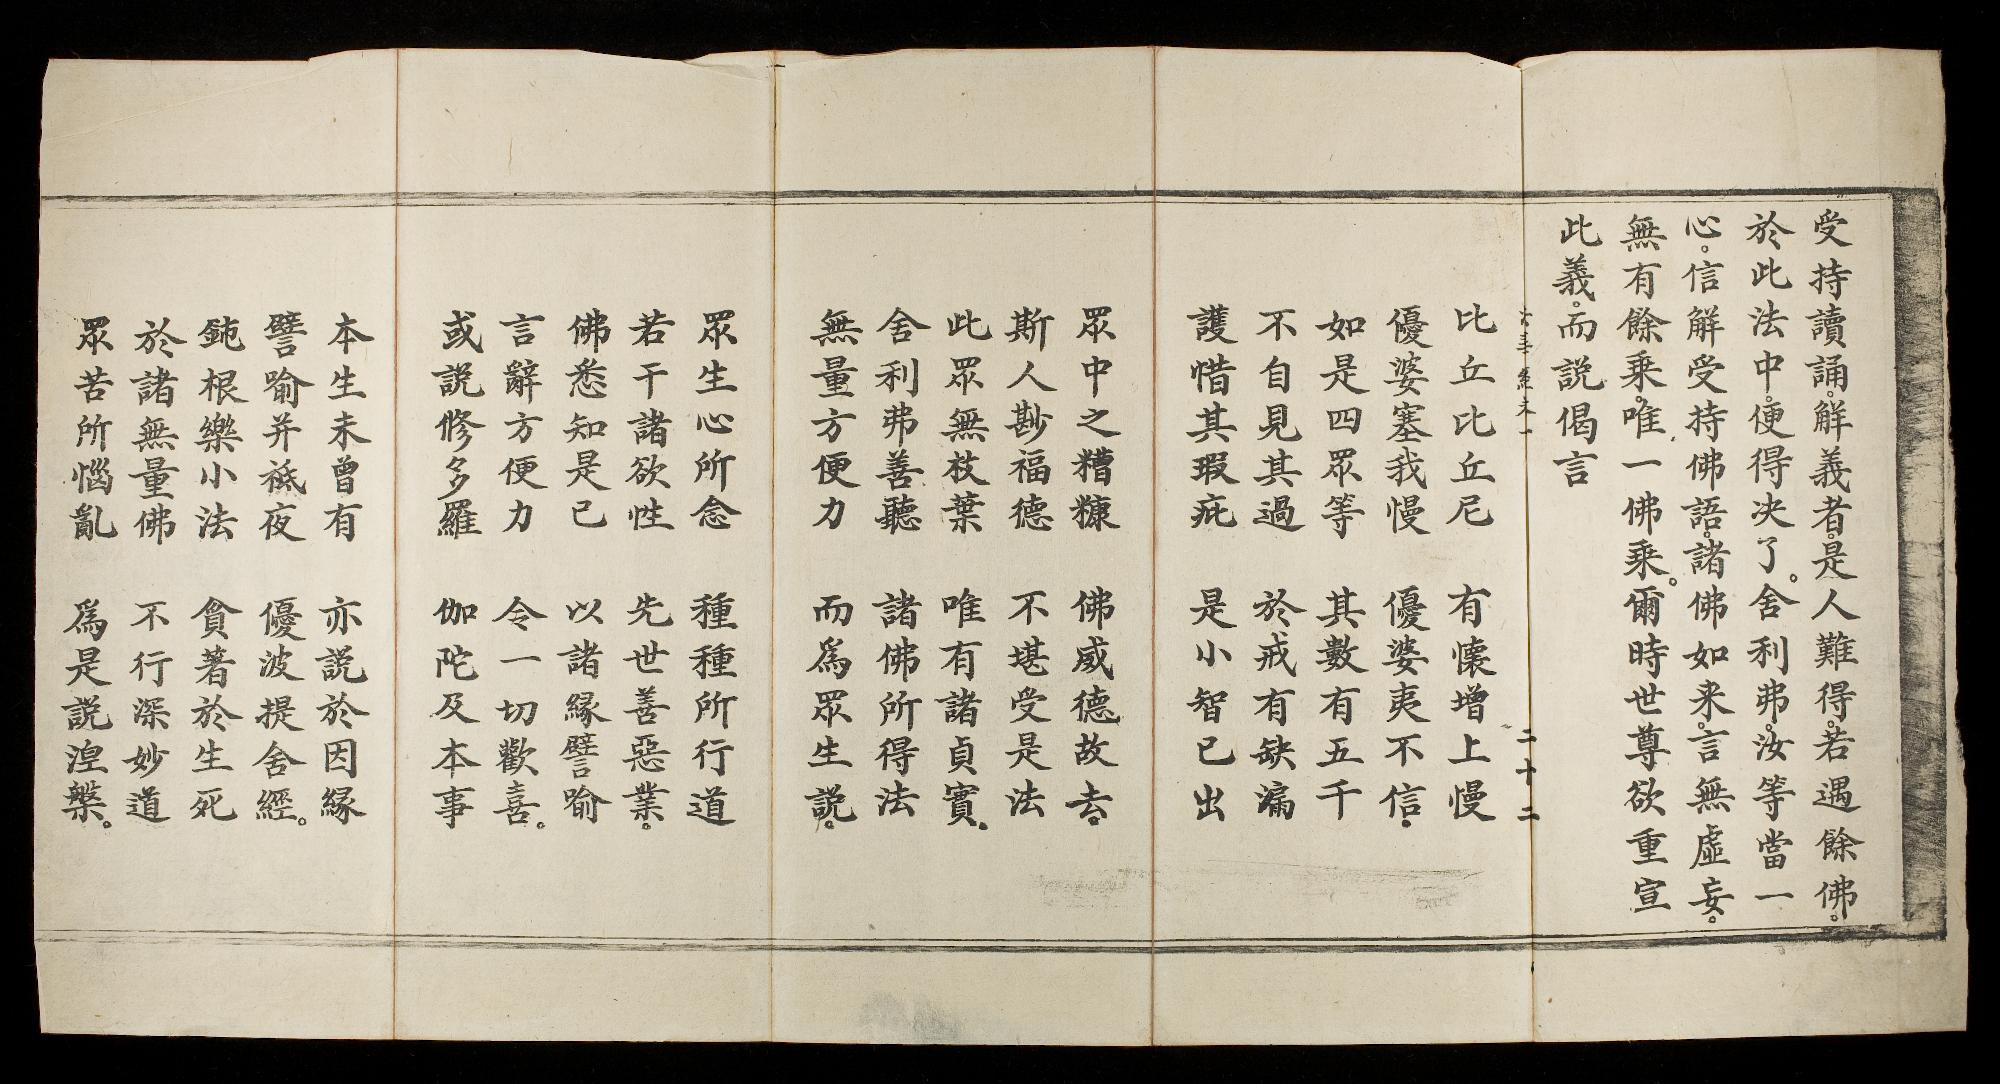 受持讀誦。解義者。是人難得。若遇餘佛。
於此法中。便得决了。舍利弗。汝等當一
心。信解受持佛語。諸佛如来。言無虛妄。
無有餘乘。唯一佛乘。爾時世尊欲重宣
此義。而說偈言
二十二
比丘比丘尼　有懷增上慢
優婆塞我慢　優婆夷不信。
如是四眾等　其數有五千
不自見其過　於戒有缺漏
護惜其瑕疵　是小智已出
眾中之糟糠　佛威德故去。
斯人尠福德　不堪受是法
此眾無枝葉　唯有諸貞實。
舍利弗善聽　諸佛所得法
無量方便力　而為眾生說。
眾生心所念　種種所行道
若干諸欲性　先世善惡業。
佛悉知是已　以諸緣譬喻
言辭方便力　令一切歡喜。
或說修多羅　伽陀及本事
本生未曾有　亦說於因緣
譬喻并祇夜　優波提舍經。
鈍根樂小法　貪著於生死
於諸無量佛　不行深妙道
眾苦所惱亂　為是說涅槃。